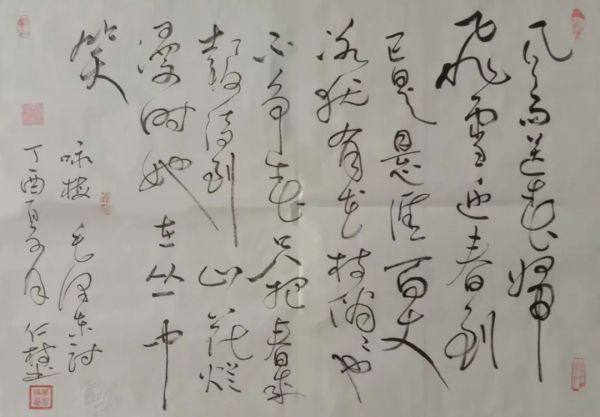 风雨送春歸
飛雪迎春到
已是悬崖百丈
冰犹有花枝俏俏也
不争春只把春来
報待到山花烂
漫时她在丛中
笑
咏梅 毛泽东
丁酉 月 仁